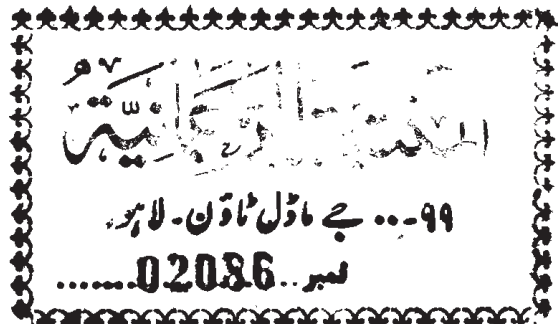 المكتبة الرحمانية
۹۹-.. جے ماڈل ٹاؤن۔ لاہور
نمبر..02086.......